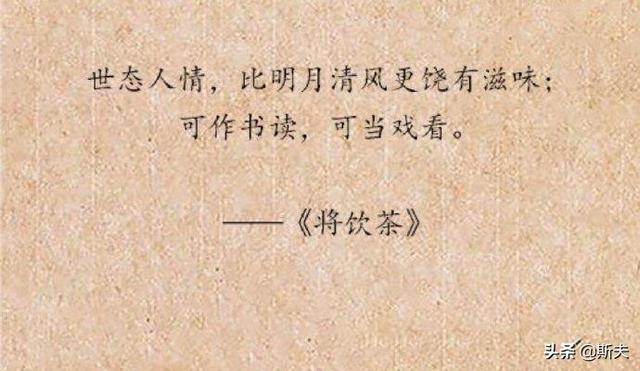 世态人情，比明月清风更饶有滋味；
可作书读，可当戏看。
——《将饮茶》
头条 @斯夫